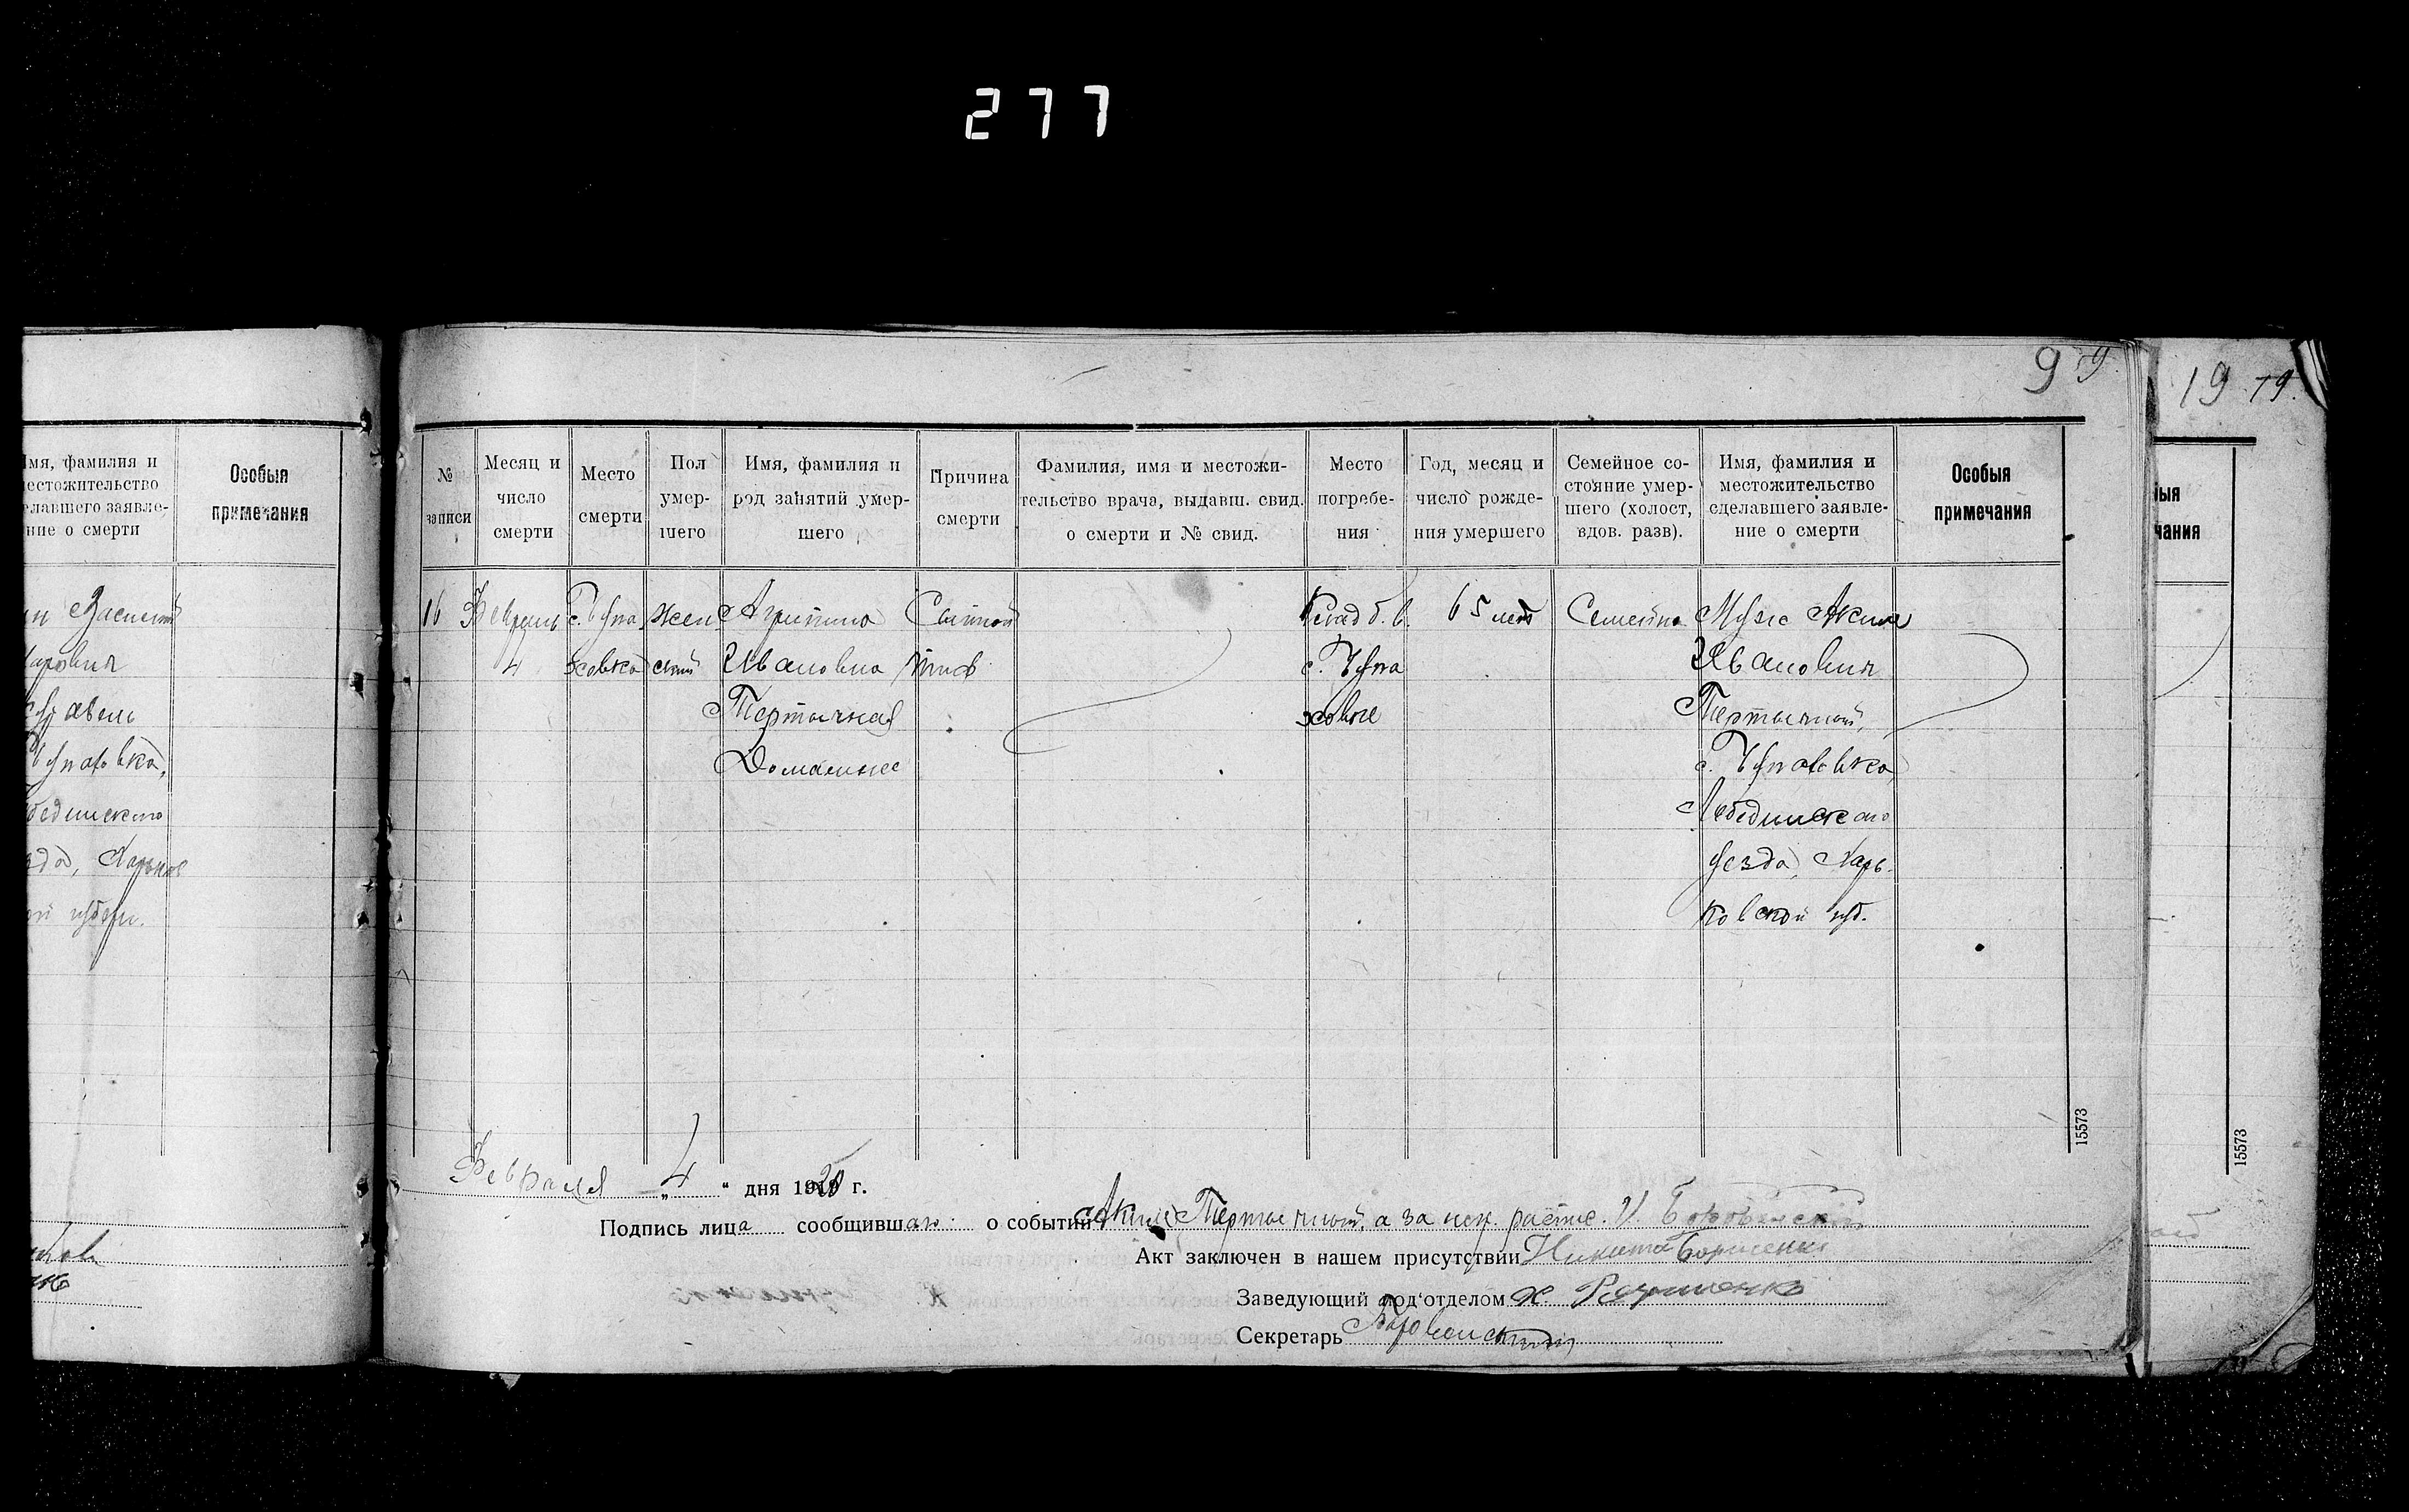 277
9 9
19 19.
Имя, фамилия и
местожительство
сделавшего заявле-
ние о смерти
Особыя
примечания
№
записи
Месяц и
число
смерти
Место
смерти
Пол
умер-
шего
Имя, фамилия и
род занятий умер-
шего
Причина
смерти
Фамилия, имя и местожи-
тельство врача, выдавш. свид.
о смерти и № свид.
Место
погребе-
ния
Год, месяц и
число рожде-
ния умершего
Семейное со-
стояние умер-
шего (холост,
вдов. разв).
Имя, фамилия и
местожительство
сделавшего заявле-
ние о смерти
Особыя
примечания
16
Февраль
4
с. Чупа
ховка
жен
ский
Агрипина
Ивановна
Тертычная
Домашнее
Сыпной
тиф
Кладб. в
с. Чупа
ховке
65 лет
Семейна
Муж Аким
Иванович
Тертычный,
с. Чупаховка
Лебединского
уезда, Харь-
ковской губ.
15573
15573
Февраля „ 4 “ дня 1920 г.
Подпись лица сообщившаго о событии Аким Тертычный, а за нек. распис. И. Боровенский
Акт заключен в нашем присутствии Никита
Заведующий под'отделом
Секретарь Боровенский